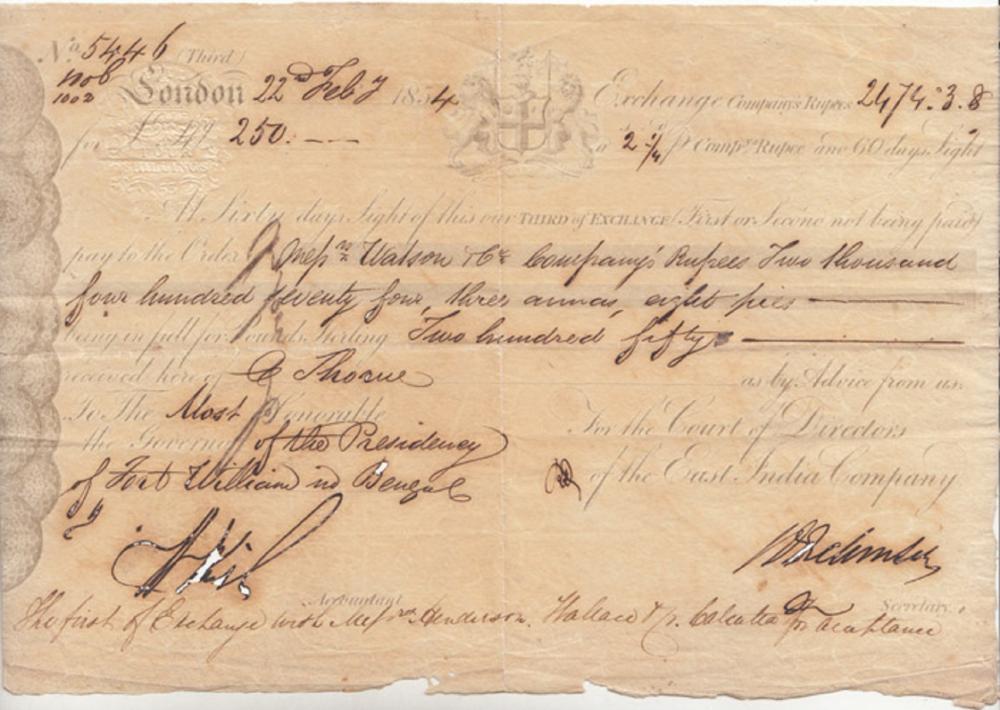 No. 5446 (Third)
1002
London 22nd Feby 1854 Exchange Company's Rupees 2474:3.8
for £ 250. a 2 1/4 p Compys Rupee and 60 days Sight
At Sixty days Sight of this our THIRD of EXCHANGE (First or Second not being paid)
pay to the Order of Messrs Watson & Co Company's Rupees Two thousand
four hundred seventy four, three annas, eight pies
being in full for Pounds Sterling Two hundred fifty
received here of C Thorne as by Advice from us.
To The Most Honorable For the Court of Directors
the Governor of the Presidency of the East India Company
of Fort William in Bengal
Accountant Secretary.
The first of Exchange with Messrs Henderson, Wallace & Co. Calcutta for acceptance